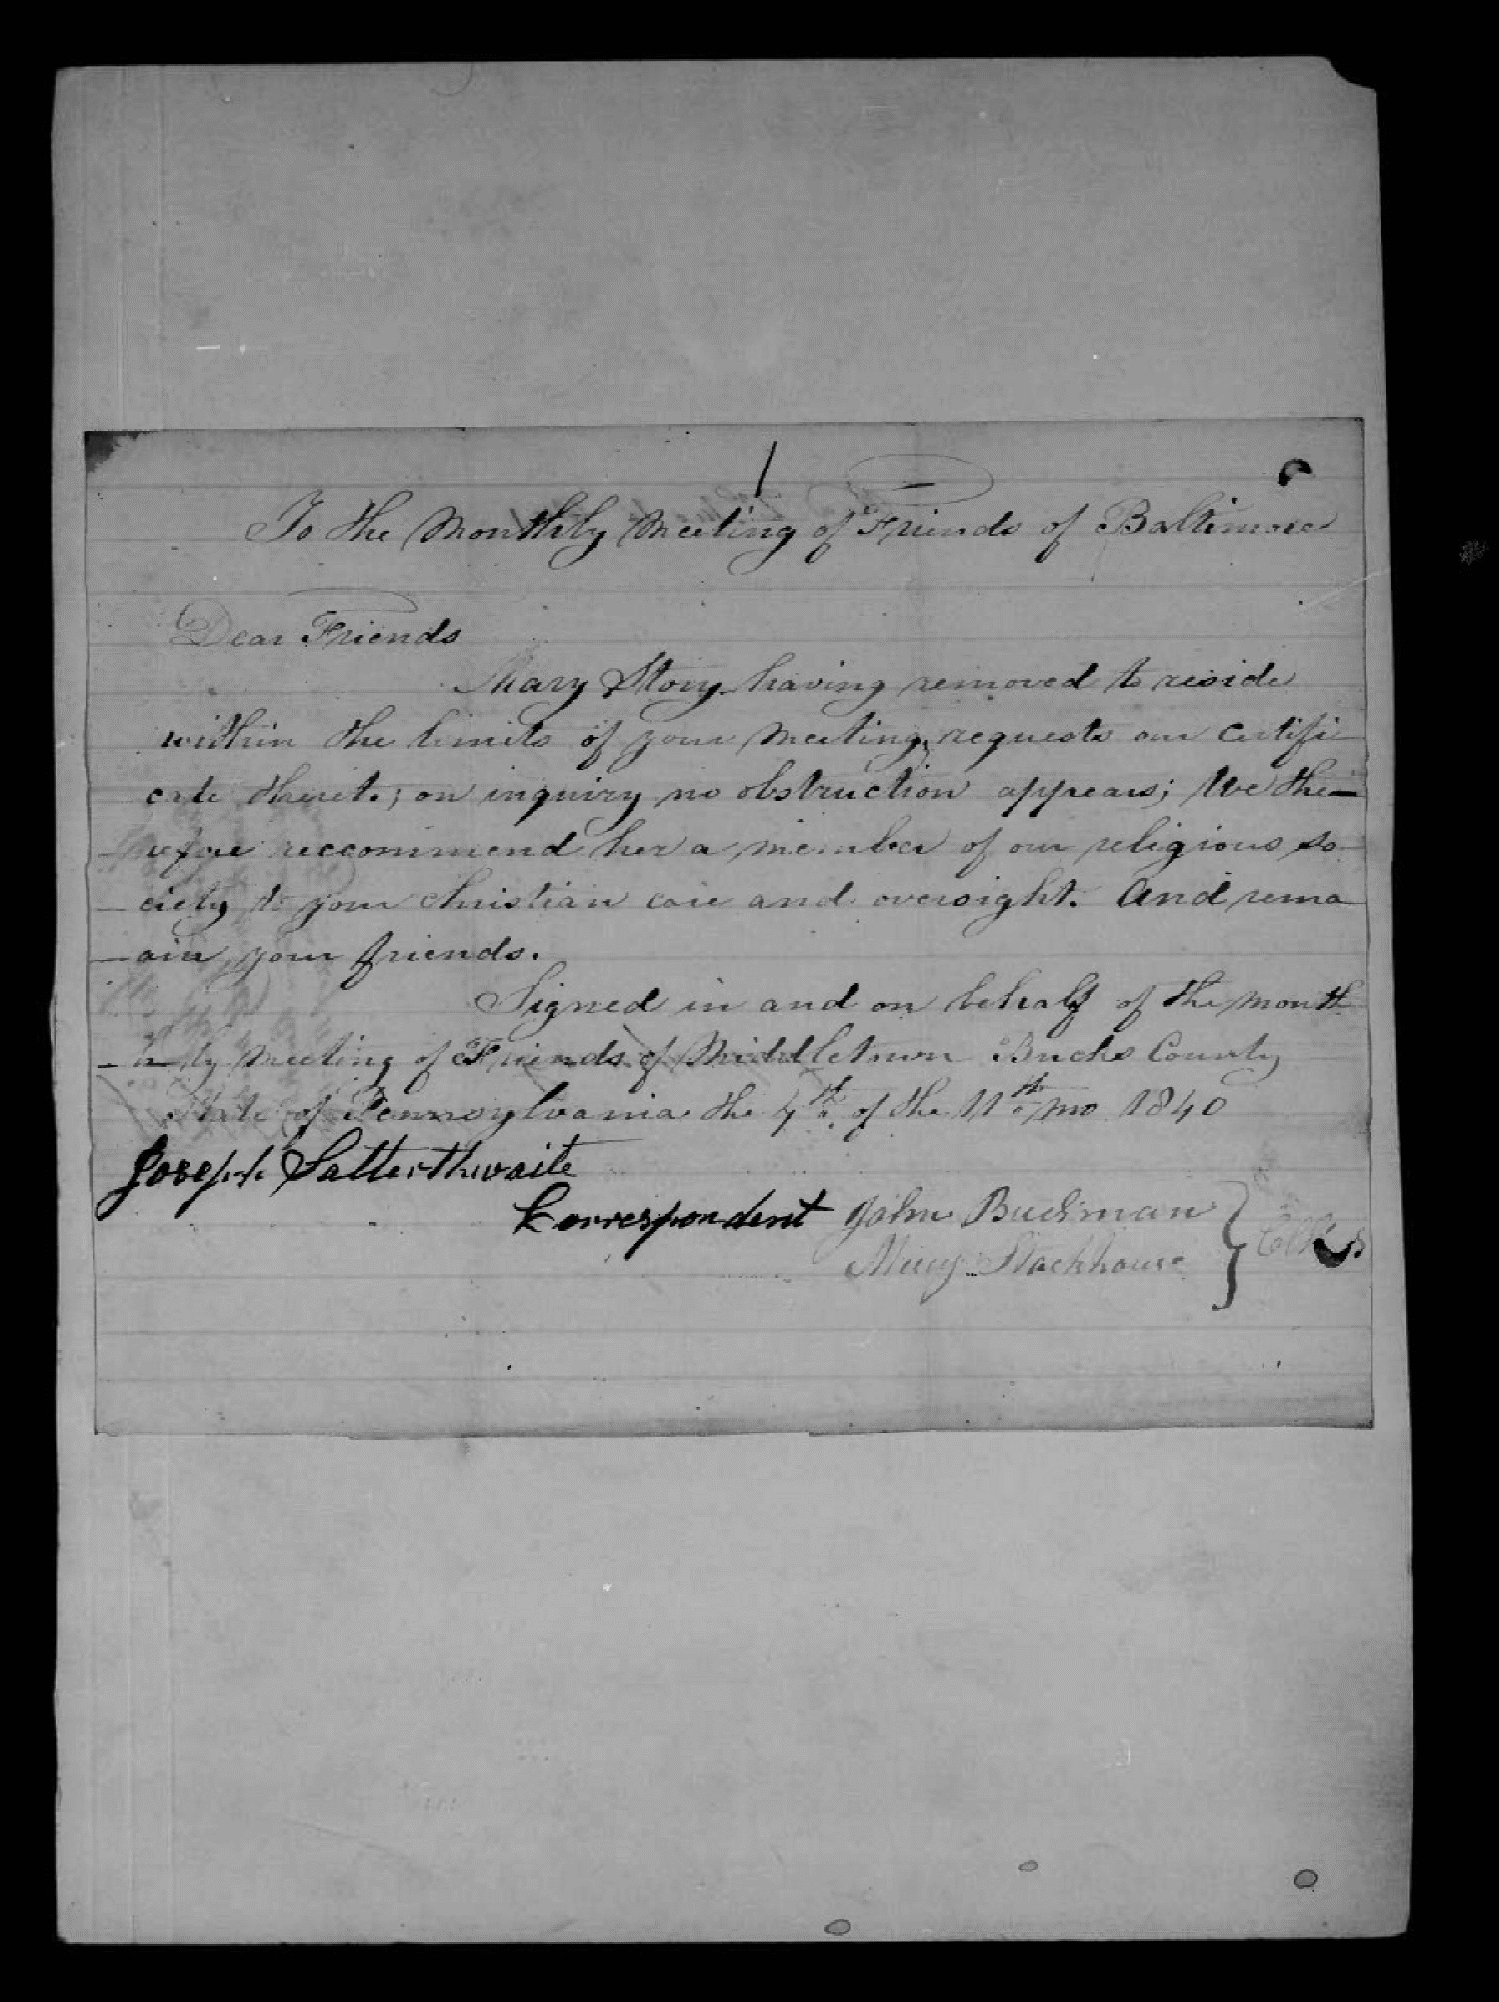 To the Monthly Meeting of Friends of Baltimore
Dear Friends
Mary Story having removed to reside
within the limits of your Meeting, requests our certifi
cate thereto; on inquiry no obstruction appears; We the—
refore reccommend her a member of our religious so
ciety to your christian care and oversight. And rema
ain your friends.
Signed in and on behalf of the month
ly meeting of Friends of Middletown Bucks County
State of Pennsylvania the 4th of the 11th mo 1840
Joseph Satterthwaite
Correspondent John Buckman
Mercy Stackhouse } Clks